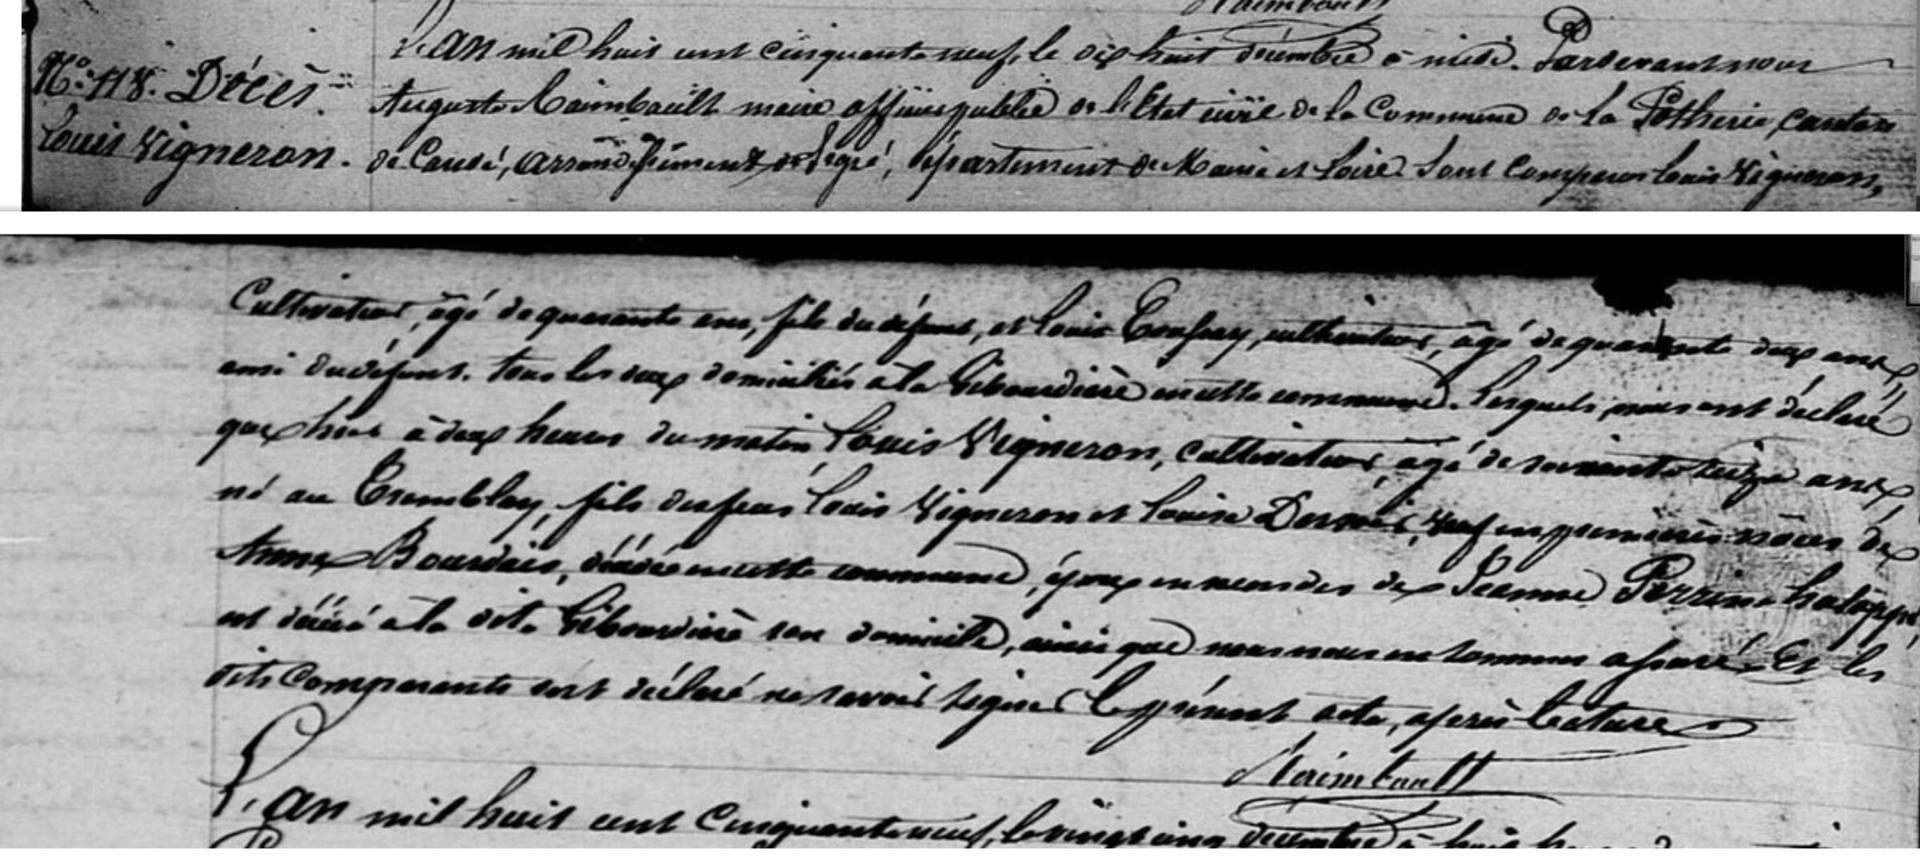 Raimbault
N.° 118. Décès
Louis Vigneron.
L'an mil huit cent cinquante neuf, le dix huit décembre à midi. Pardevant nous
Auguste Raimbault maire officier public de l'Etat civil de la Commune de la Potherie, canton
de Candé, arrondissement de Segré, département de Maine et Loire Sont comparus Louis Vigneron,
Cultivateur, âgé de quarante ans, fils du défunt, et Louis cultivateur, âgé de quarante deux ans,
ami du défunt. tous les deux domiciliés à la Gibourdière en cette commune. Lesquels nous ont déclaré
que hier à deux heures du matin Louis Vigneron, cultivateur, âgé de soixante seize ans,
né au Tremblay, fils des feus Louis Vigneron et Louise veuf en premières nôces de
Anne Bourdais, décédée en cette commune, époux en secondes de Jeanne Perrine
est décédé à la dite Gibourdière son domicile, ainsi que nous nous en sommes assuré. Et les
dits comparants ont déclaré ne savoir signer le présent acte, après lecture
Raimbault
L'an mil huit cent cinquante neuf, le vingt cinq décembre à huit